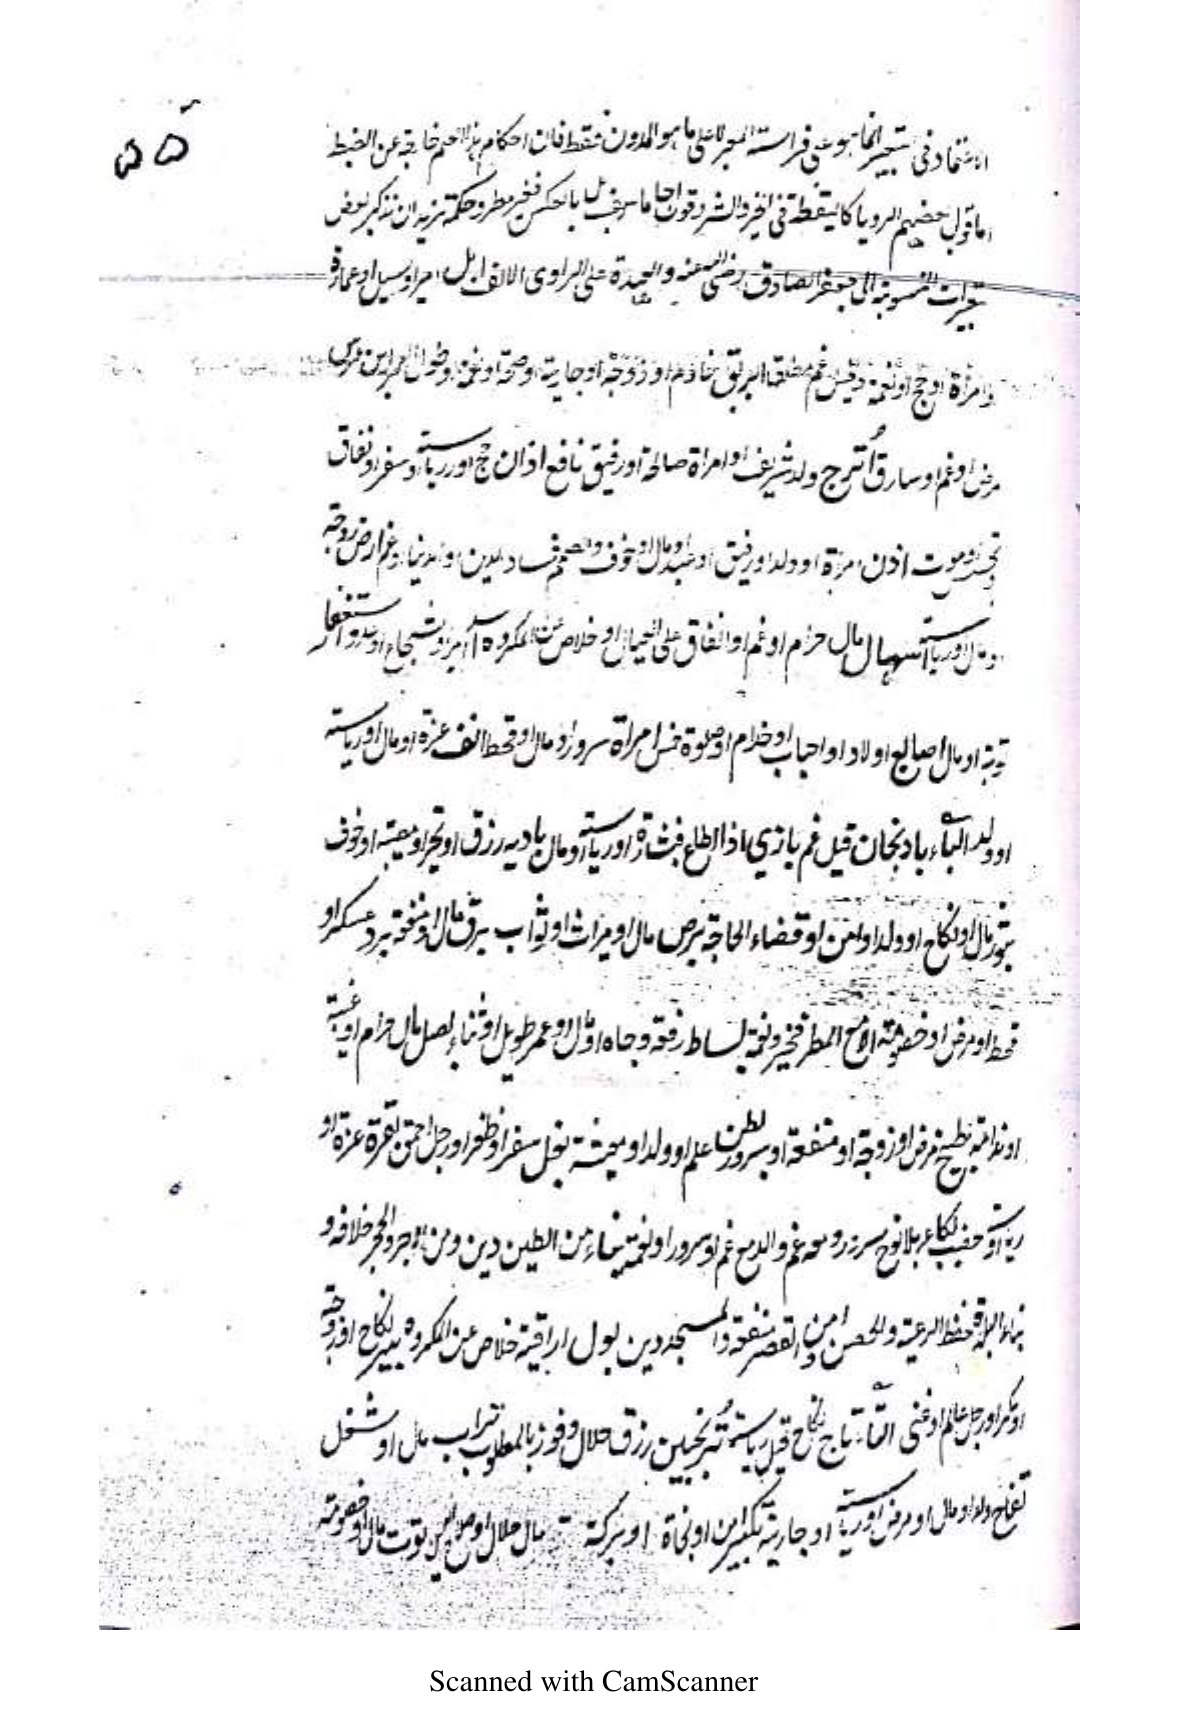 ۵۵
الاعتماد فى تعبير انما هو على فراسته المعبر لا على ما هو المدون فقط فان احكام هذا العلم خارجة عن الضبط
اما قول بعضهم الرويا كاليقظة فى الخير والشر وقول بالعكس فغير مطرد وحكمة نريد ان نذكر بعض
تعبيرات المنسوبة الى جعفر الصادق رضى الله عنه والعهدة على الراوى الالف ابل امير او سيل او عمارة
وامراة او حج او نعمة وقيل غم مطلقا ابريق خادم او زوجة او جارية او صحة او نعمة وطول العمر ابن عرس
مرض او غم او سارق اُترج ولد شريف او امراة صالحة او رفيق نافع اذان حج او رياسة او سفر او نفاق
او موت اذن امراة او ولد او رفيق او مال او خوف فساد الدين او الدنيا وغم ارض زوجة
او مال او رياسة اسهال مال حرام او غم او انفاق على العيال او خلاص عن المكروه اسد امير او شجاع او عدو استغفار
توبة او مال اصابع اولاد او احباب او خدام او صلوة خمس امراة سرور او مال او قحط انف عزة او مال او رياسة
او ولد الباء بادنجان قيل غم بازي اذا اطاع فبشارة او رياسة او مال بادية رزق او تحير او معيشة او خوف
بخور مال او نكاح او ولد او امن او قضاء الحاجة برص مال او ميراث او ثواب برق مال او منفعة برد عسكر او
قحط او مرض او خصومة الا مع المطر فخير ونعمة بساط رفعة وجاه او مال او عمر طويل او ثناء بصل مال حرام او غيبة
او ندامة بطيخ مرض او زوجة او منفعة او سرور بطن علم او ولد او معيشة بغل سفر او ظفر او رجل احمق بقرة عزة او
رياسة او خصب بكاء بلا نوح سرور ومعه غم والدمع غم او سرور او نعمة بناء من الطين دين ومن الاجر والحجر خلافه و
بناء البلدة حفظ الرعية وللحصن امن والقصر منفعة والمسجد دين بول اراقته خلاص عن المكروه بير نكاح او زوجة
او مكر او رجل عالم او غنى التاء تاج نكاح قيل رياسة تُرنجبين رزق حلال وفوز بالمطلوب تراب مال او شغل
تفاح ولد او مال او مرض او رياسة او جارية تكبير امن او نجاة او بركة مال حلال او توت مال او خصومة
Scanned with CamScanner